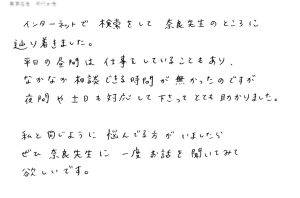 インターネットで 検索をして 奈良先生のところに
辿り着きました。
平日の昼間は仕事をしていることもあり、
なかなか相談できる時間が無かったのですが
夜間や土日も対応して下さってとても助かりました。
私と同じように悩んでる方がいましたら
ぜひ 奈良先生に 一度お話を聞いてみて
欲しいです。